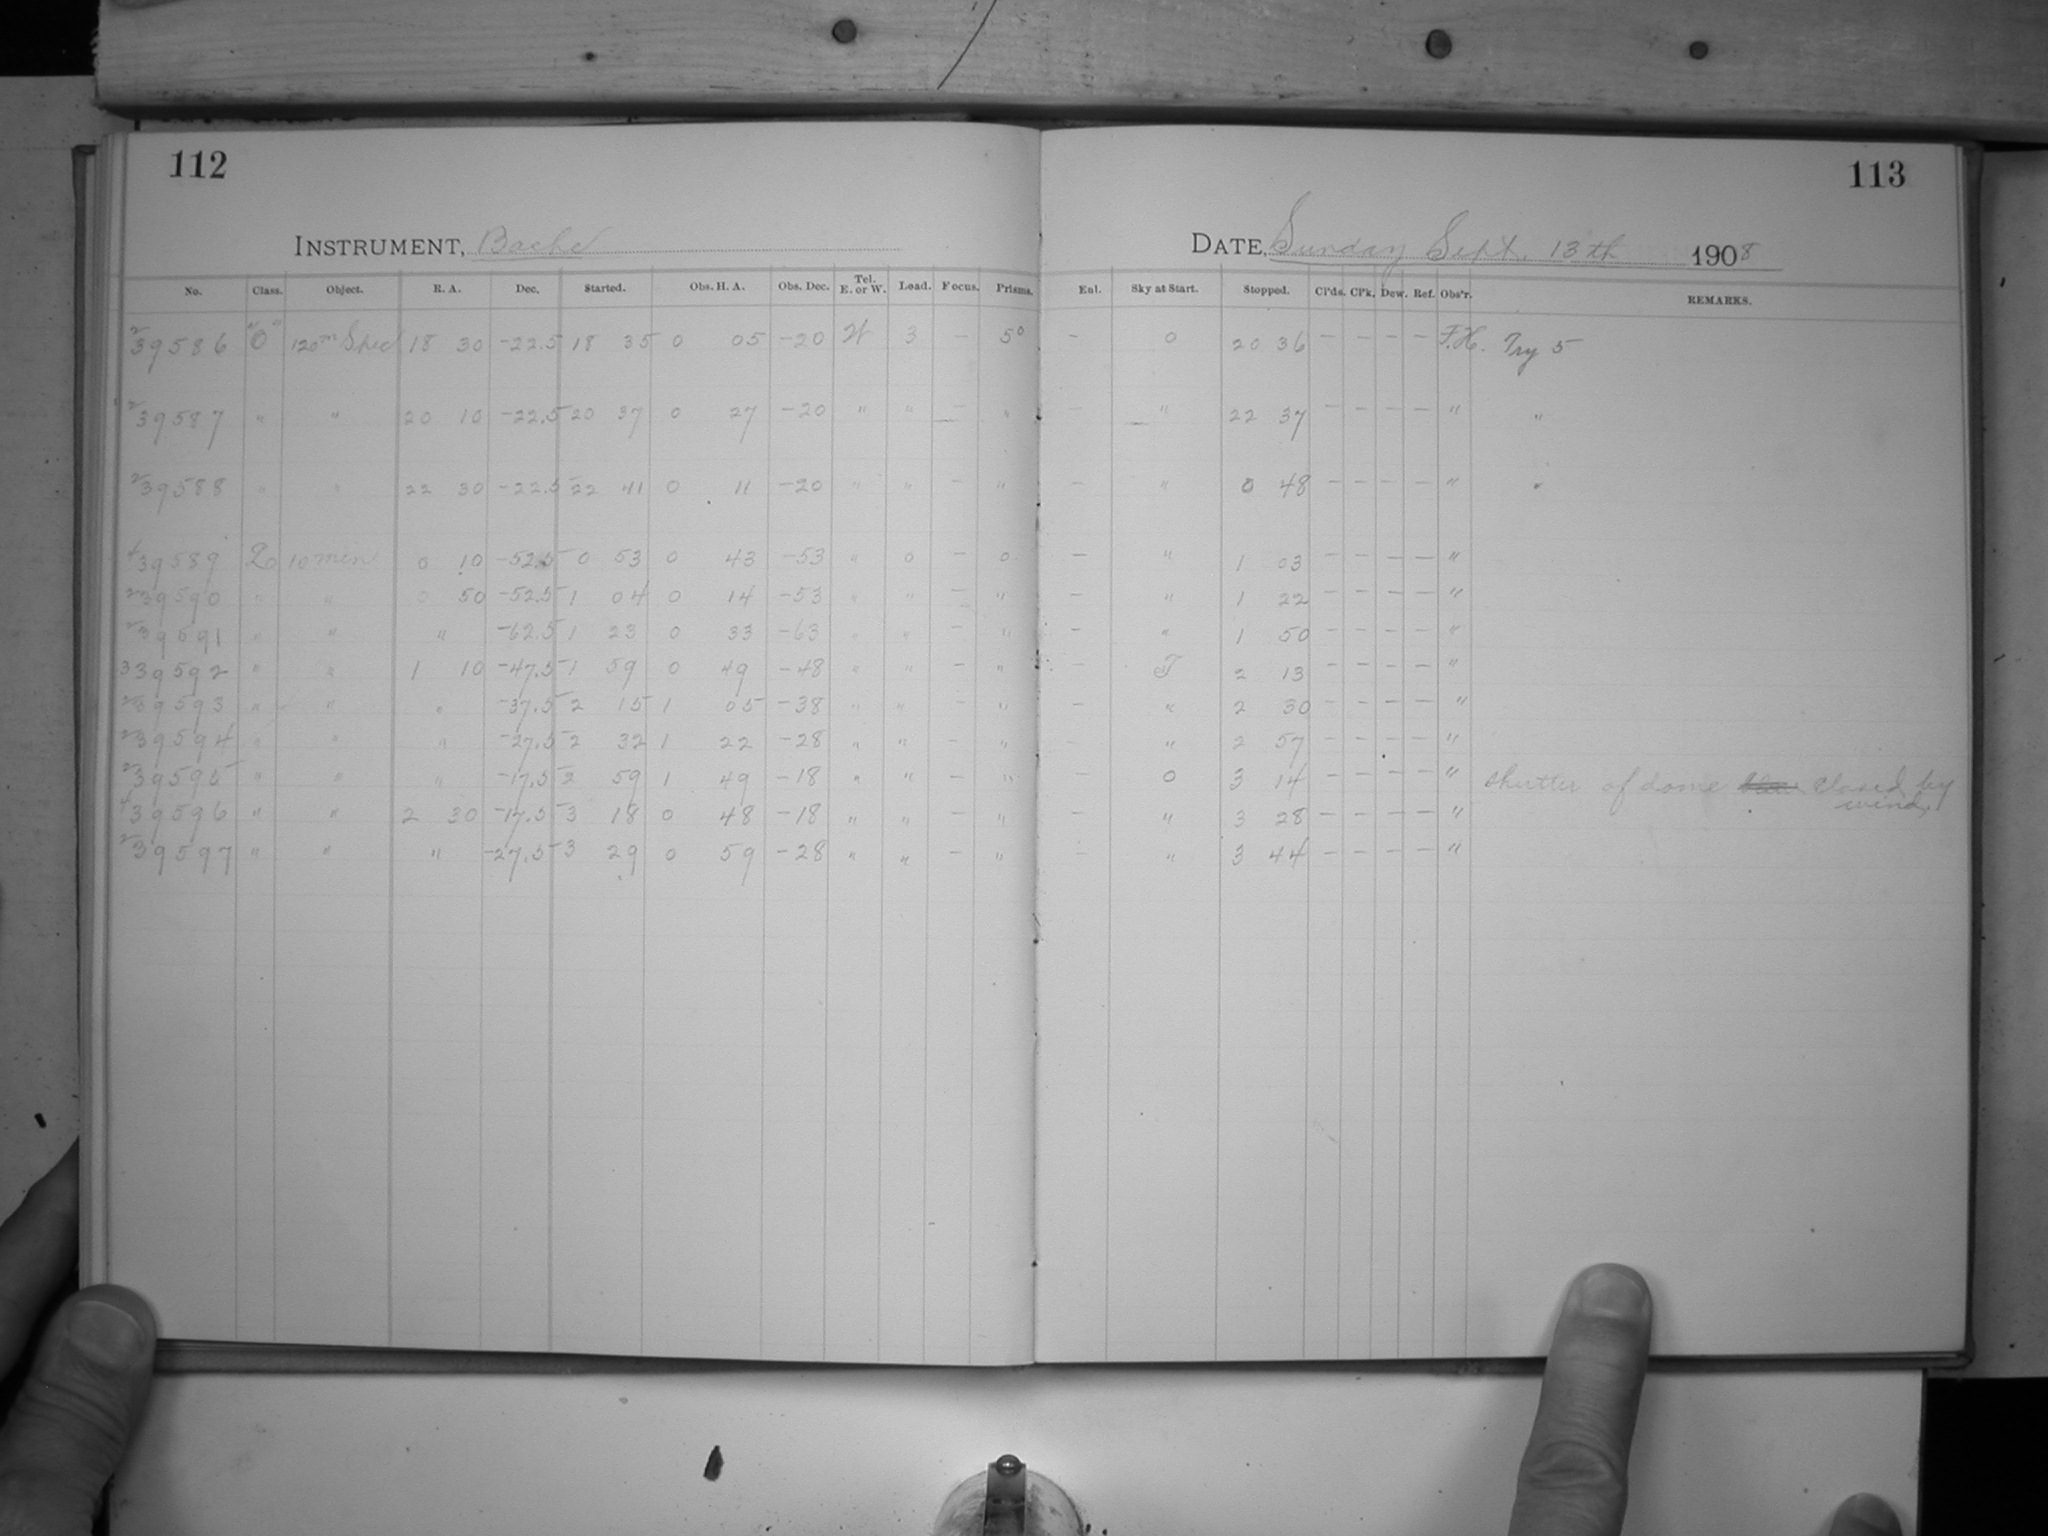 112
113
INSTRUMENT, Bache
DATE, Sunday Sept. 13th 1908
No. Class. Object. R. A. Dec. Started. Obs. H. A. Obs. Dec. Tel. E. or W. Lead. Focus. Prisms. Enl. Sky at Start. Stopped. Cl'ds. Cl'k. Dew. Ref. Obs'r. REMARKS.
2 39586 "O" 120m Spec 18 30 -22.5 18 35 0 05 -20 W 3 - 5° - 0 20 36 - - - - F.H. Try 5
2 39587 " " 20 10 -22.5 20 37 0 27 -20 " " - " - " 22 37 - - - - " "
2 39588 " " 22 30 -22.5 22 41 0 11 -20 " " - " - " 0 48 - - - - " "
4 39589 20 10 min 0 10 -52.5 0 53 0 43 -53 " 0 - 0 - " 1 03 - - - - "
2 39590 " " 0 50 -52.5 1 04 0 14 -53 " " - " - " 1 22 - - - - "
2 39591 " " " -62.5 1 23 0 33 -63 " " - " - " 1 50 - - - - "
3 39592 " " 1 10 -47.5 1 59 0 49 -48 " " - " - F 2 13 - - - - "
2 39593 " " " -37.5 2 15 1 05 -38 " " - " - " 2 30 - - - - "
2 39594 " " " -27.5 2 32 1 22 -28 " " - " - " 2 57 - - - - "
2 39595 " " " -17.5 2 59 1 49 -18 " " - " - 0 3 14 - - - - " Shutter of dome closed by
wind.
4 39596 " " 2 30 -17.5 3 18 0 48 -18 " " - " - " 3 28 - - - - "
2 39597 " " " -27.5 3 29 0 59 -28 " " - " - " 3 44 - - - - "